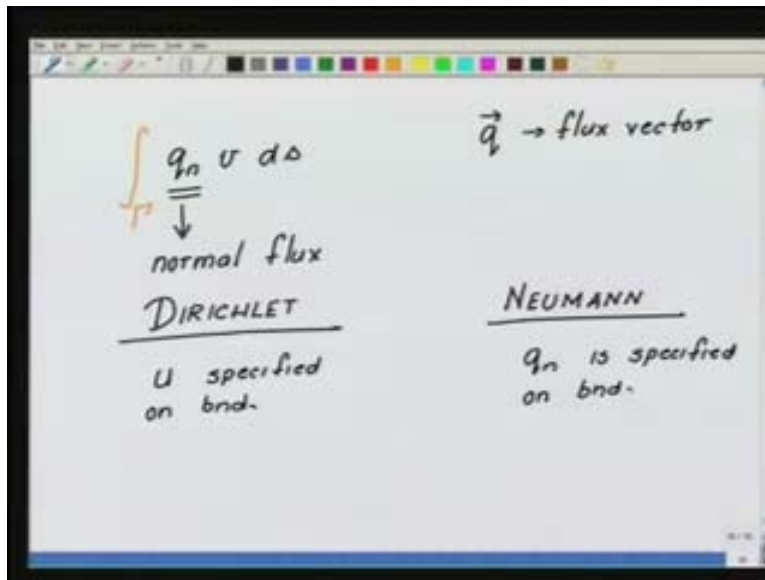 ∫_Γ q_n v ds
q⃗ → flux vector
normal flux
DIRICHLET
u specified
on bnd.
NEUMANN
q_n is specified
on bnd.